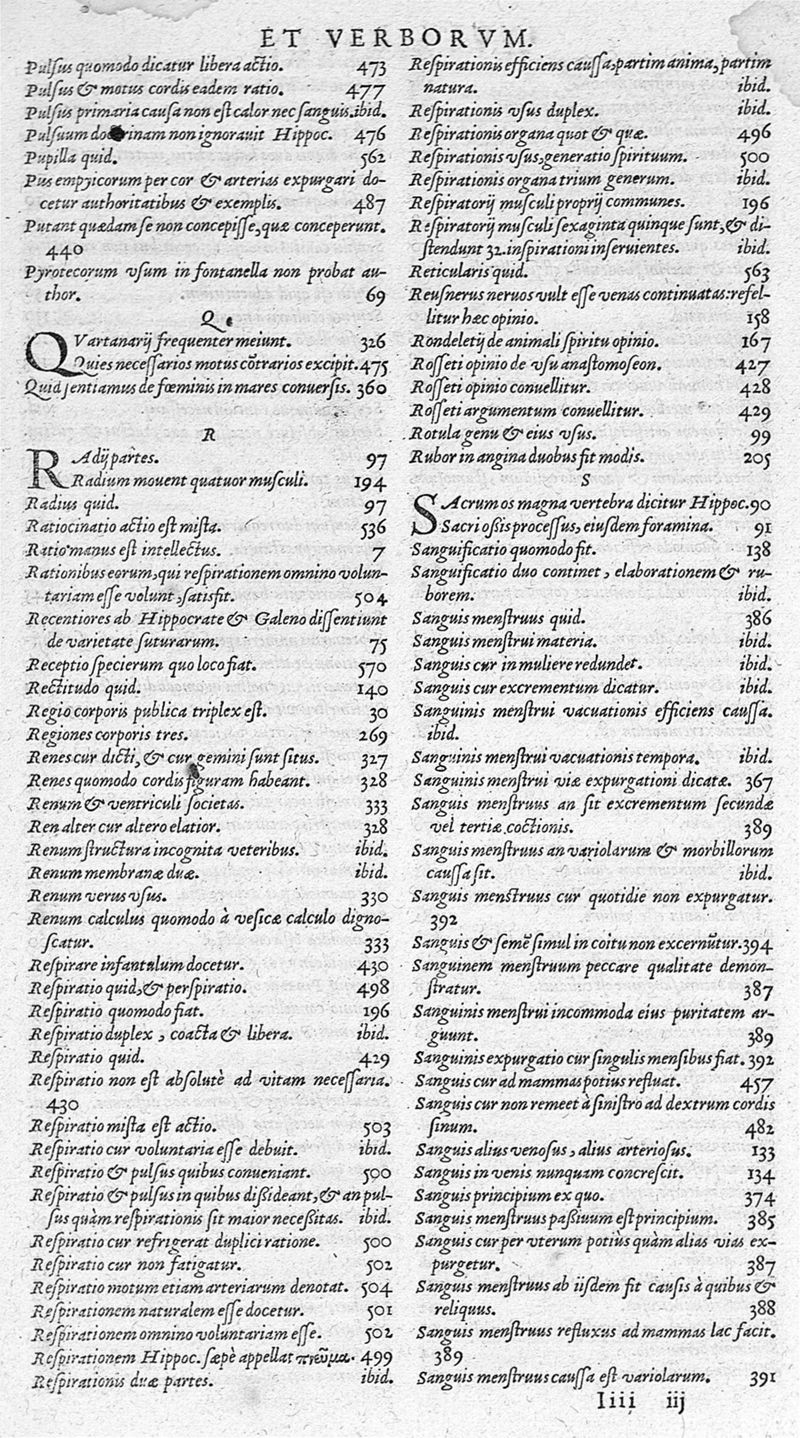 ET VERBORVM.
Pulsus quomodo dicatur libera actio. 473
Pulsus & motus cordis eadem ratio. 477
Pulsus primaria causa non est calor nec sanguis. ibid.
Pulsuum doctrinam non ignorauit Hippoc. 476
Pupilla quid. 562
Pus empyicorum per cor & arterias expurgari do-
cetur authoritatibus & exemplis. 487
Putant quædam se non concepisse, quæ conceperunt.
440
Pyrotecorum vsum in fontanella non probat au-
thor. 69
Q
QVartanarij frequenter meiunt. 326
Quies necessarios motus cõtrarios excipit. 475
Quid sentiamus de fœminis in mares conuersis. 360
R
RAdij partes. 97
Radium mouent quatuor musculi. 194
Radius quid. 97
Ratiocinatio actio est mista. 536
Ratio manus est intellectus. 7
Rationibus eorum, qui respirationem omnino volun-
tariam esse volunt, satisfit. 504
Recentiores ab Hippocrate & Galeno dissentiunt
de varietate suturarum. 75
Receptio specierum quo loco fiat. 570
Rectitudo quid. 140
Regio corporis publica triplex est. 30
Regiones corporis tres. 269
Renes cur dicti, & cur gemini sunt situs. 327
Renes quomodo cordis figuram habeant. 328
Renum & ventriculi societas. 333
Ren alter cur altero elatior. 328
Renum structura incognita veteribus. ibid.
Renum membranæ duæ. ibid.
Renum verus vsus. 330
Renum calculus quomodo à vesicæ calculo digno-
scatur. 333
Respirare infantulum docetur. 430
Respiratio quid, & perspiratio. 498
Respiratio quomodo fiat. 196
Respiratio duplex, coacta & libera. ibid.
Respiratio quid. 429
Respiratio non est absolutè ad vitam necessaria.
430
Respiratio mista est actio. 503
Respiratio cur voluntaria esse debuit. ibid.
Respiratio & pulsus quibus conueniant. 500
Respiratio & pulsus in quibus dißideant, & an pul-
sus quàm respirationis sit maior neceßitas. ibid.
Respiratio cur refrigerat duplici ratione. 500
Respiratio cur non fatigatur. 502
Respiratio motum etiam arteriarum denotat. 504
Respirationem naturalem esse docetur. 501
Respirationem omnino voluntariam esse. 502
Respirationem Hippoc. sæpè appellat πνεῦμα. 499
Respirationis duæ partes. ibid.
Respirationis efficiens caussa, partim anima, partim
natura. ibid.
Respirationis vsus duplex. ibid.
Respirationis organa quot & quæ. 496
Respirationis vsus, generatio spirituum. 500
Respirationis organa trium generum. ibid.
Respiratorij musculi proprij communes. 196
Respiratorij musculi sexaginta quinque sunt, & di-
stendunt 32. inspirationi inseruientes. ibid.
Reticularis quid. 563
Reusnerus neruos vult esse venas continuatas: refel-
litur hæc opinio. 158
Rondeletij de animali spiritu opinio. 167
Rosseti opinio de vsu anastomoseon. 427
Rosseti opinio conuellitur. 428
Rosseti argumentum conuellitur. 429
Rotula genu & eius vsus. 99
Rubor in angina duobus fit modis. 205
S
SAcrum os magna vertebra dicitur Hippoc. 90
Sacri oßis processus, eiusdem foramina. 91
Sanguificatio quomodo fit. 138
Sanguificatio duo continet, elaborationem & ru-
borem. ibid.
Sanguis menstruus quid. 386
Sanguis menstrui materia. ibid.
Sanguis cur in muliere redundet. ibid.
Sanguis cur excrementum dicatur. ibid.
Sanguinis menstrui vacuationis efficiens caussa.
ibid.
Sanguinis menstrui vacuationis tempora. ibid.
Sanguinis menstrui viæ expurgationi dicatæ. 367
Sanguis menstruus an sit excrementum secundæ
vel tertiæ coctionis. 389
Sanguis menstruus an variolarum & morbillorum
caussa sit. ibid.
Sanguis menstruus cur quotidie non expurgatur.
392
Sanguis & semẽ simul in coitu non excernũtur. 394
Sanguinem menstruum peccare qualitate demon-
stratur. 387
Sanguinis menstrui incommoda eius puritatem ar-
guunt. 389
Sanguinis expurgatio cur singulis mensibus fiat. 392
Sanguis cur ad mammas potius refluat. 457
Sanguis cur non remeet à sinistro ad dextrum cordis
sinum. 482
Sanguis alius venosus, alius arteriosus. 133
Sanguis in venis nunquam concrescit. 134
Sanguis principium ex quo. 374
Sanguis menstruus paßiuum est principium. 385
Sanguis cur per vterum potiùs quàm alias vias ex-
purgetur. 387
Sanguis menstruus ab iisdem fit causis à quibus &
reliquus. 388
Sanguis menstruus refluxus ad mammas lac facit.
389
Sanguis menstruus caussa est variolarum. 391
Iiii iij